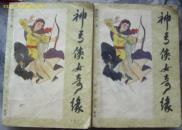 神弓侠女奇缘
神弓侠女奇缘